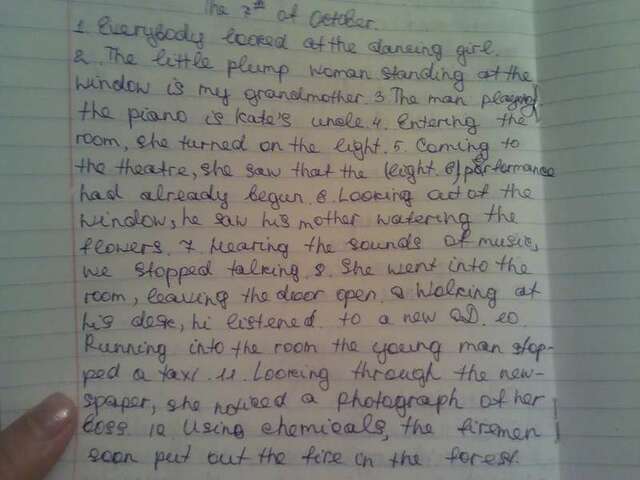 The 7th of October.
1. Everybody looked at the dancing girl.
2. The little plump woman standing at the
window is my grandmother. 3 The man playing
the piano is Kate's uncle. 4. Entering the
room, she turned on the light. 5. Coming to
the theatre, she saw that the (light. 6) performance
had already begun. 6. Looking out of the
window, he saw his mother watering the
flowers. 7. Hearing the sounds of music,
we stopped talking. 8. She went into the
room, leaving the door open. 9 Walking at
his desk, hi listened to a new CD. 10.
Running into the room the young man stop-
ped a taxi. 11. Looking through the new-
spaper, she noticed a photograph of her
boss. 12 Using chemicals, the firemen
soon put out the fire in the forest.